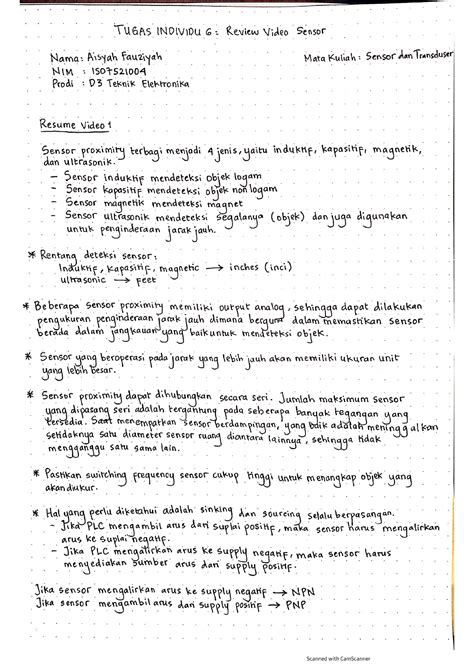 TUGAS INDIVIDU 6: Review Video Sensor
Nama: Aisyah Fauziyah
Mata Kuliah: Sensor dan Transduser
NIM : 1507521004
Prodi : D3 Teknik Elektronika
Resume Video 1
Sensor proximity terbagi menjadi 4 jenis, yaitu induktif, kapasitif, magnetik,
dan ultrasonik.
- Sensor induktif mendeteksi objek logam
- Sensor kapasitif mendeteksi objek non logam
- Sensor magnetik mendeteksi magnet
- Sensor ultrasonik mendeteksi segalanya (objek) dan juga digunakan
untuk penginderaan jarak jauh.
* Rentang deteksi sensor:
Induktif, kapasitif, magnetic → inches (inci)
ultrasonic → feet
* Beberapa sensor proximity memiliki output analog, sehingga dapat dilakukan
pengukuran penginderaan jarak jauh dimana berguna dalam memastikan sensor
berada dalam jangkauan yang baik untuk mendeteksi objek.
* Sensor yang beroperasi pada jarak yang lebih jauh akan memiliki ukuran unit
yang lebih besar.
* Sensor proximity dapat dihubungkan secara seri. Jumlah maksimum sensor
yang dipasang seri adalah tergantung pada seberapa banyak tegangan yang
tersedia. Saat menempatkan sensor berdampingan, yang baik adalah meninggalkan
setidaknya satu diameter sensor ruang diantara lainnya, sehingga tidak
mengganggu satu sama lain.
* Pastikan switching frequency sensor cukup tinggi untuk menangkap objek yang
akan diukur.
* Hal yang perlu diketahui adalah sinking dan sourcing selalu berpasangan.
- Jika PLC mengambil arus dari suplai positif, maka sensor harus mengalirkan
arus ke suplai negatif.
- Jika PLC mengalirkan arus ke supply negatif, maka sensor harus
menyediakan sumber arus dari supply positif.
Jika sensor mengalirkan arus ke supply negatif → NPN
Jika sensor mengambil arus dari supply positif → PNP
Scanned with CamScanner